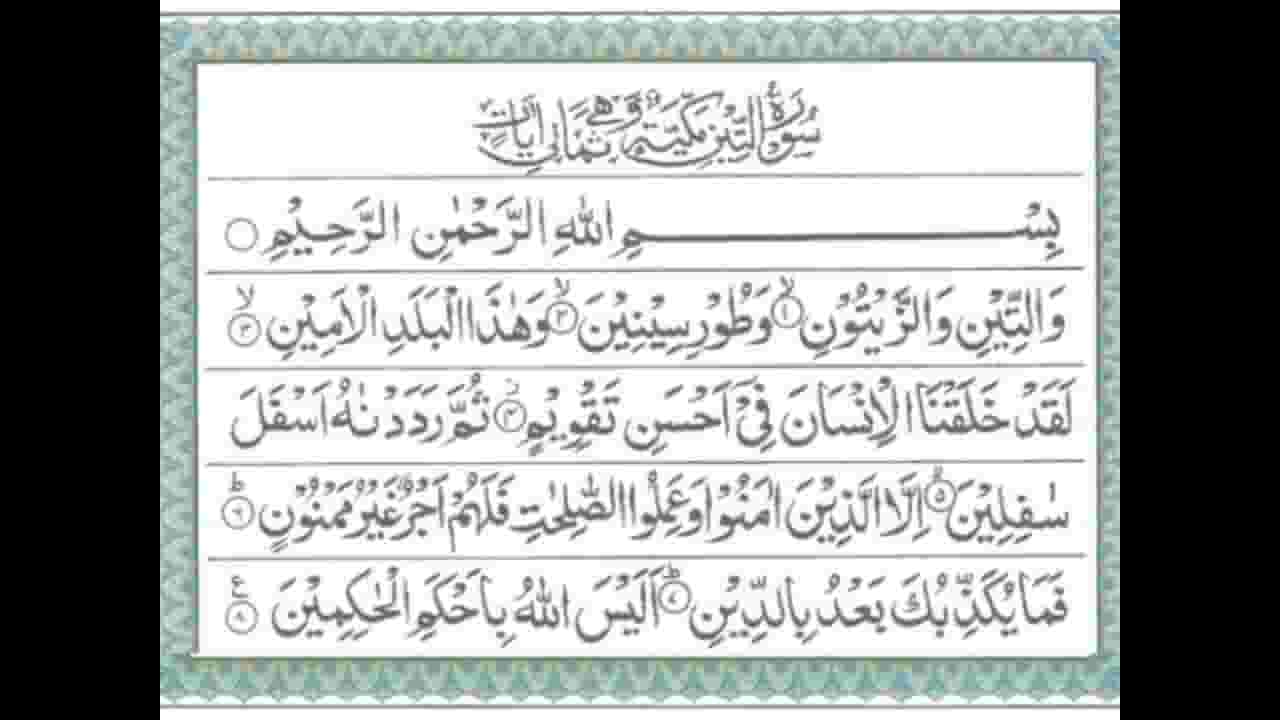 سُوْرَةُ التِّيْنِ مَكِّيَّةٌ وَّهِيَ ثَمَانِي اٰيَاتٍ
بِسْمِ اللهِ الرَّحْمٰنِ الرَّحِيْمِ ○
وَالتِّيْنِ وَالزَّيْتُوْنِ ۙ﴿۱﴾ وَطُوْرِ سِيْنِيْنَ ۙ﴿۲﴾ وَهٰذَا الْبَلَدِ الْاَمِيْنِ ۙ﴿۳﴾
لَقَدْ خَلَقْنَا الْاِنْسَانَ فِيْٓ اَحْسَنِ تَقْوِيْمٍ ۫﴿۴﴾ ثُمَّ رَدَدْنٰهُ اَسْفَلَ
سٰفِلِيْنَ ۙ﴿۵﴾ اِلَّا الَّذِيْنَ اٰمَنُوْا وَعَمِلُوا الصّٰلِحٰتِ فَلَهُمْ اَجْرٌ غَيْرُ مَمْنُوْنٍ ؕ﴿۶﴾
فَمَا يُكَذِّبُكَ بَعْدُ بِالدِّيْنِ ؕ﴿۷﴾ اَلَيْسَ اللهُ بِاَحْكَمِ الْحٰكِمِيْنَ ﴿۸﴾ ع